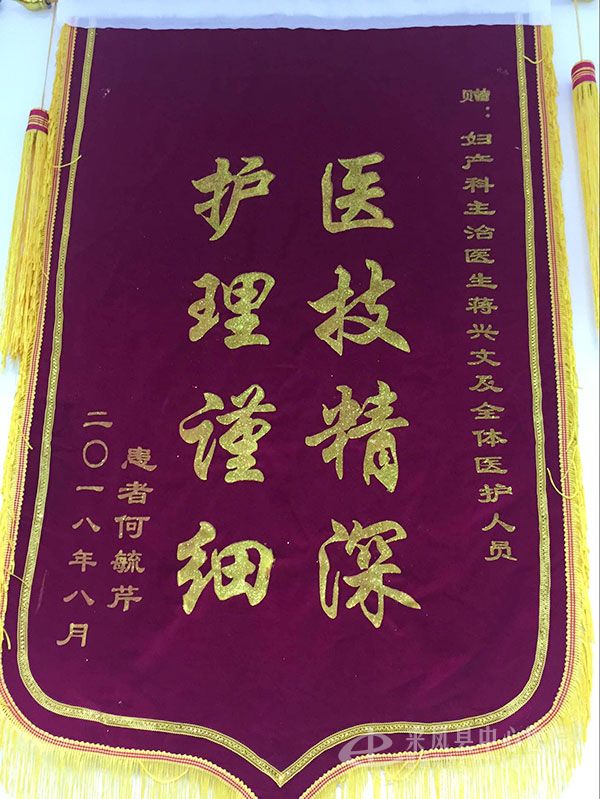 赠：妇产科主治医生蒋兴文及全体医护人员
医技精深
护理谨细
患者何毓芹
二〇一八年八月
来凤县中心医院